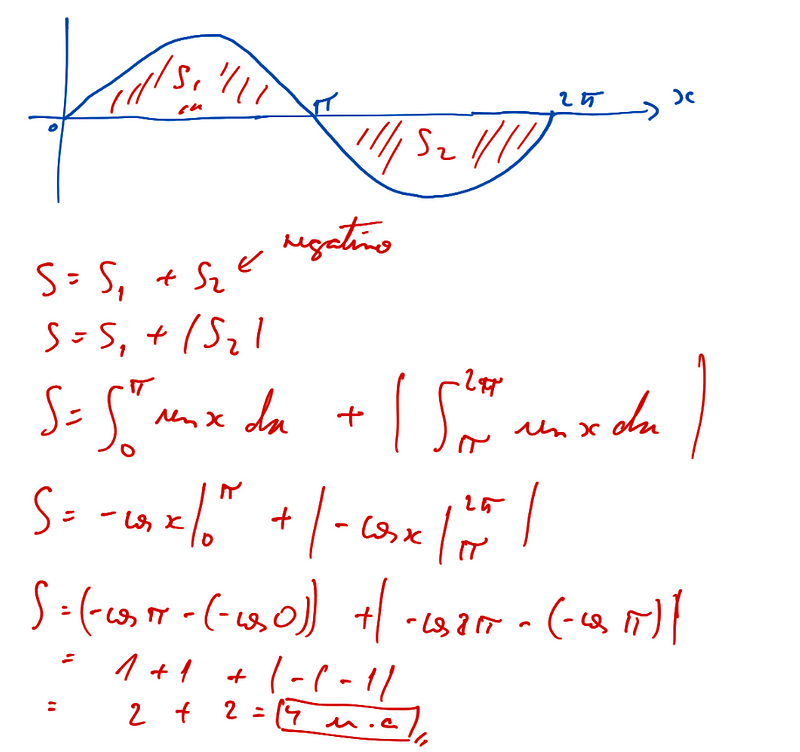 S₁
π 2π x
0
S₂
negativo
S = S₁ + S₂
S = S₁ + |S₂|
S = ∫₀^π sen x dx + | ∫_π^2π sen x dx |
S = -cos x |₀^π + | -cos x |_π^2π |
S = (-cos π - (-cos 0)) + | -cos 2π - (-cos π) |
= 1 + 1 + |-1 -1|
= 2 + 2 = 4 u.a